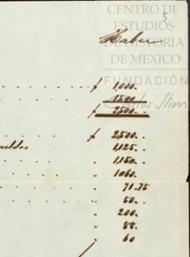 CENTRO DE
ESTUDIOS
DE HISTORIA
DE MEXICO
FUNDACIÓN
Carlos Slim
3
Haber
$ 1,000..
1500..
$ 2500..
$ 2,500..
1,125..
1,150..
1060..
71.75
50..
200..
88..
60